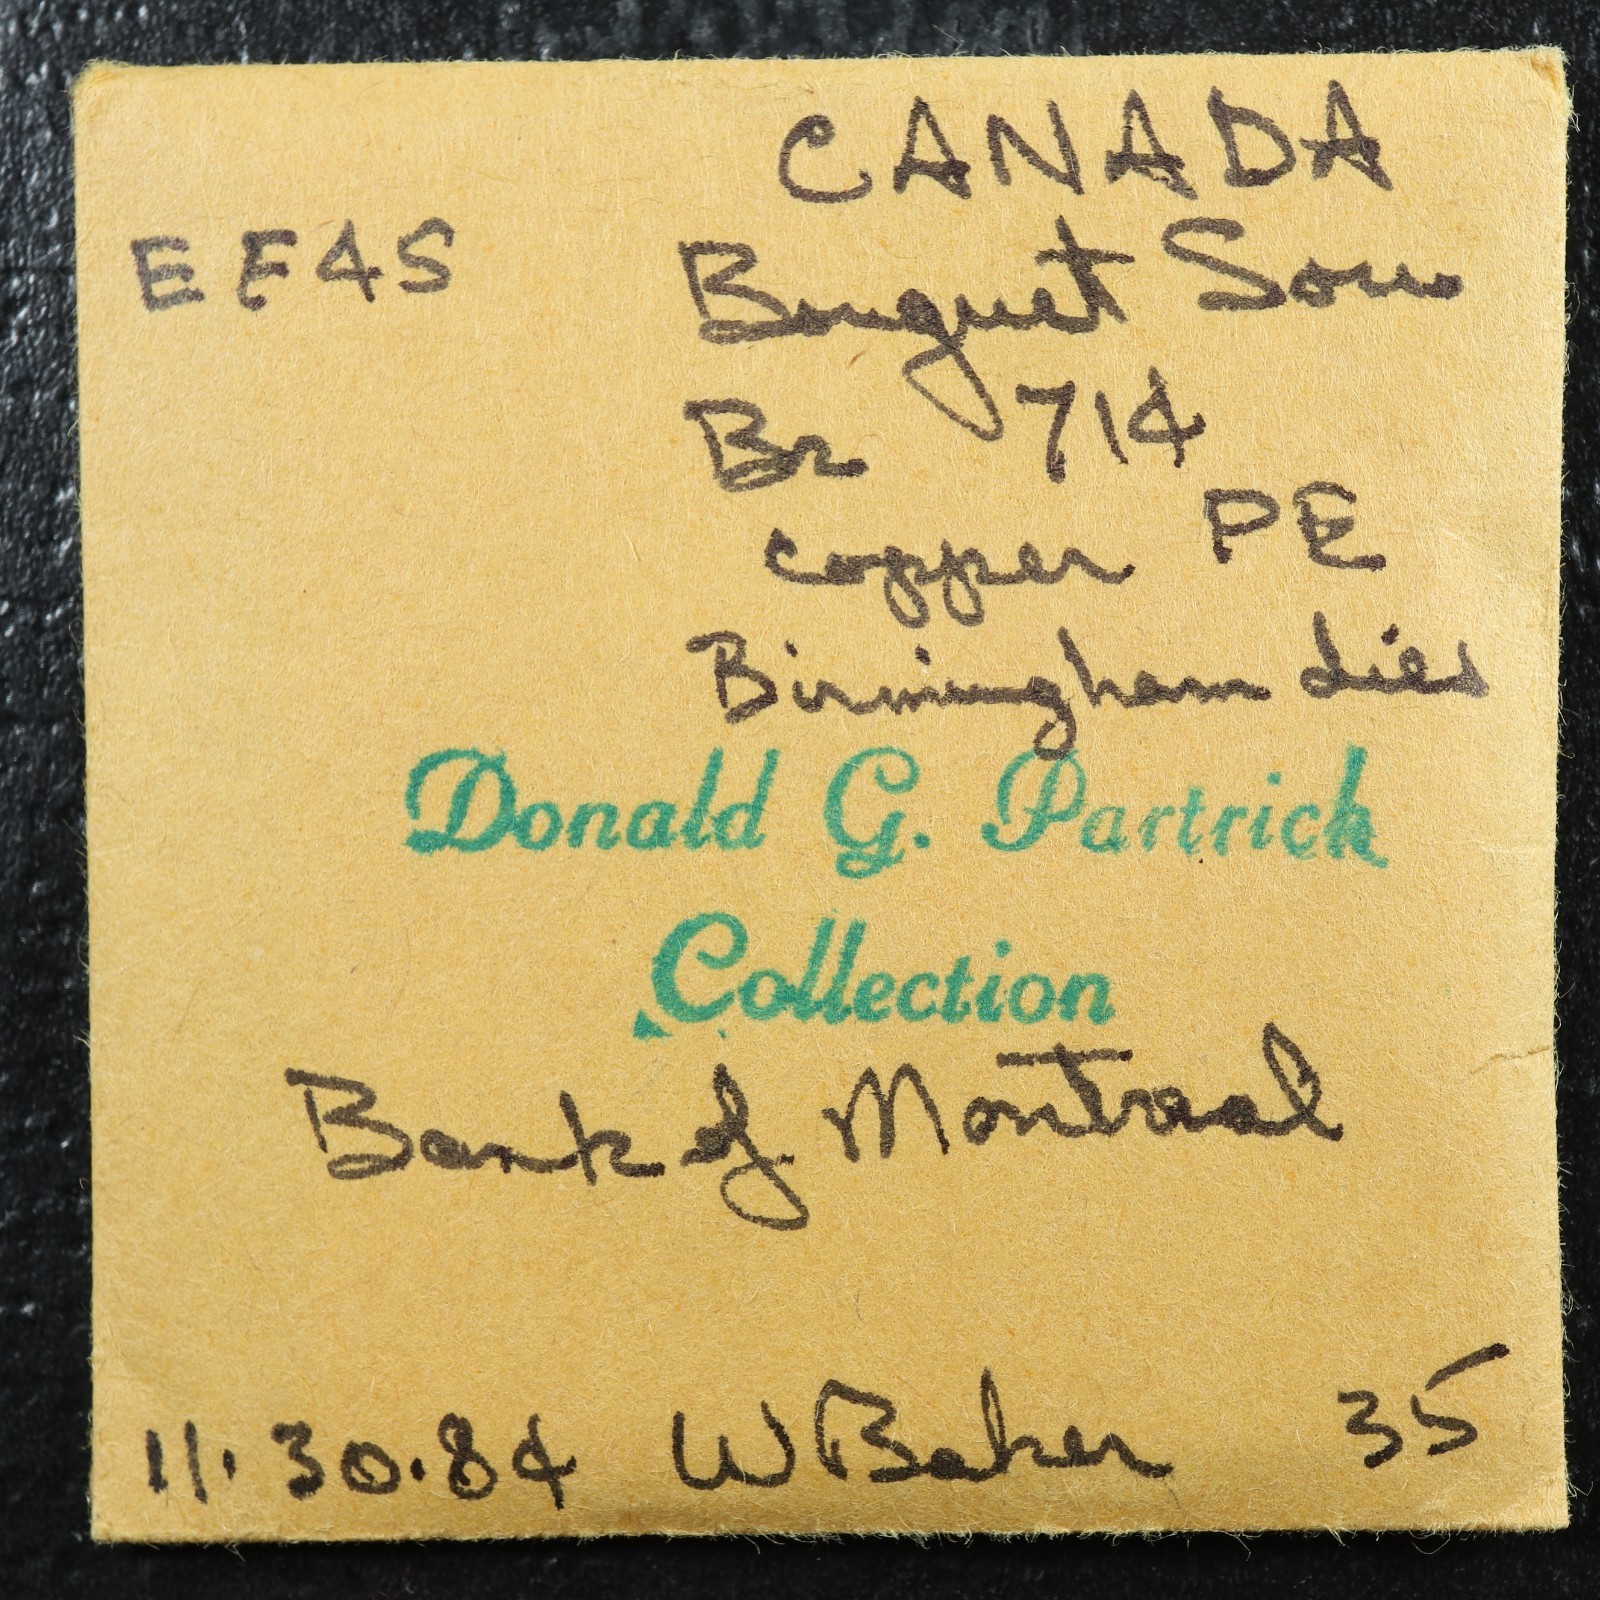 CANADA
EF45
Bouquet Sou
Br 714
copper PE
Birmingham dies
Donald G. Partrick
Collection
Bank of Montreal
11.30.84 W Baker 35